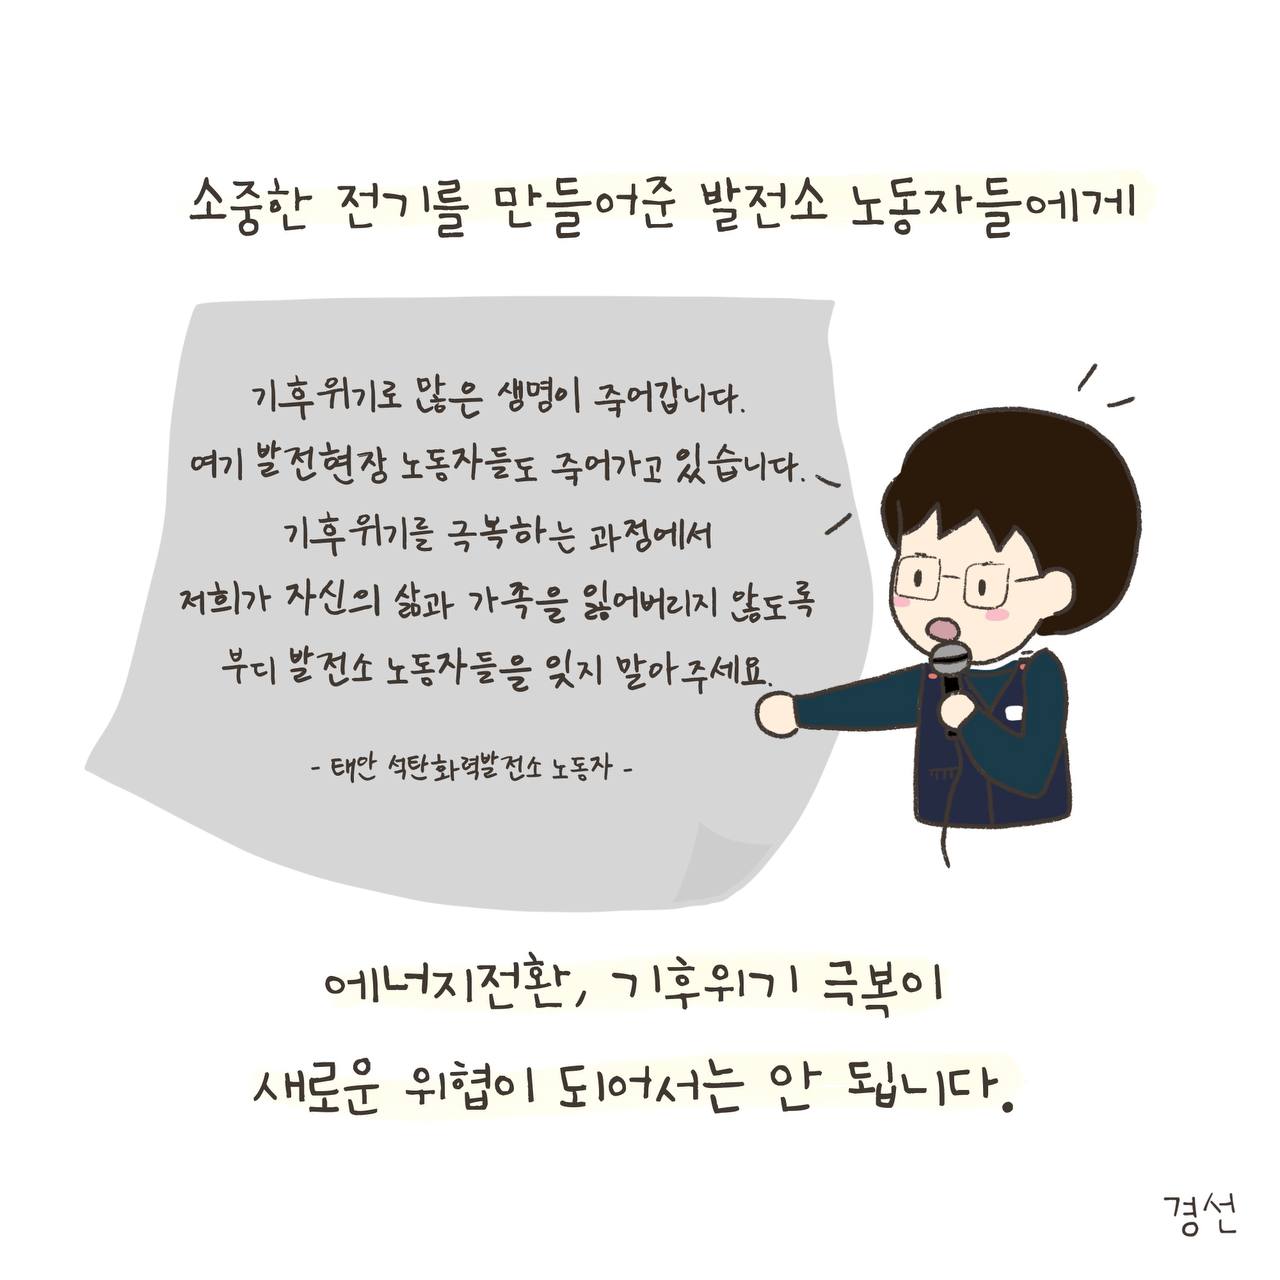 소중한 전기를 만들어준 발전소 노동자들에게
기후위기로 많은 생명이 죽어갑니다.
여기 발전현장 노동자들도 죽어가고 있습니다.
기후위기를 극복하는 과정에서
저희가 자신의 삶과 가족을 잃어버리지 않도록
부디 발전소 노동자들을 잊지 말아주세요.
- 태안 석탄화력발전소 노동자 -
에너지전환, 기후위기 극복이
새로운 위협이 되어서는 안 됩니다.
경선